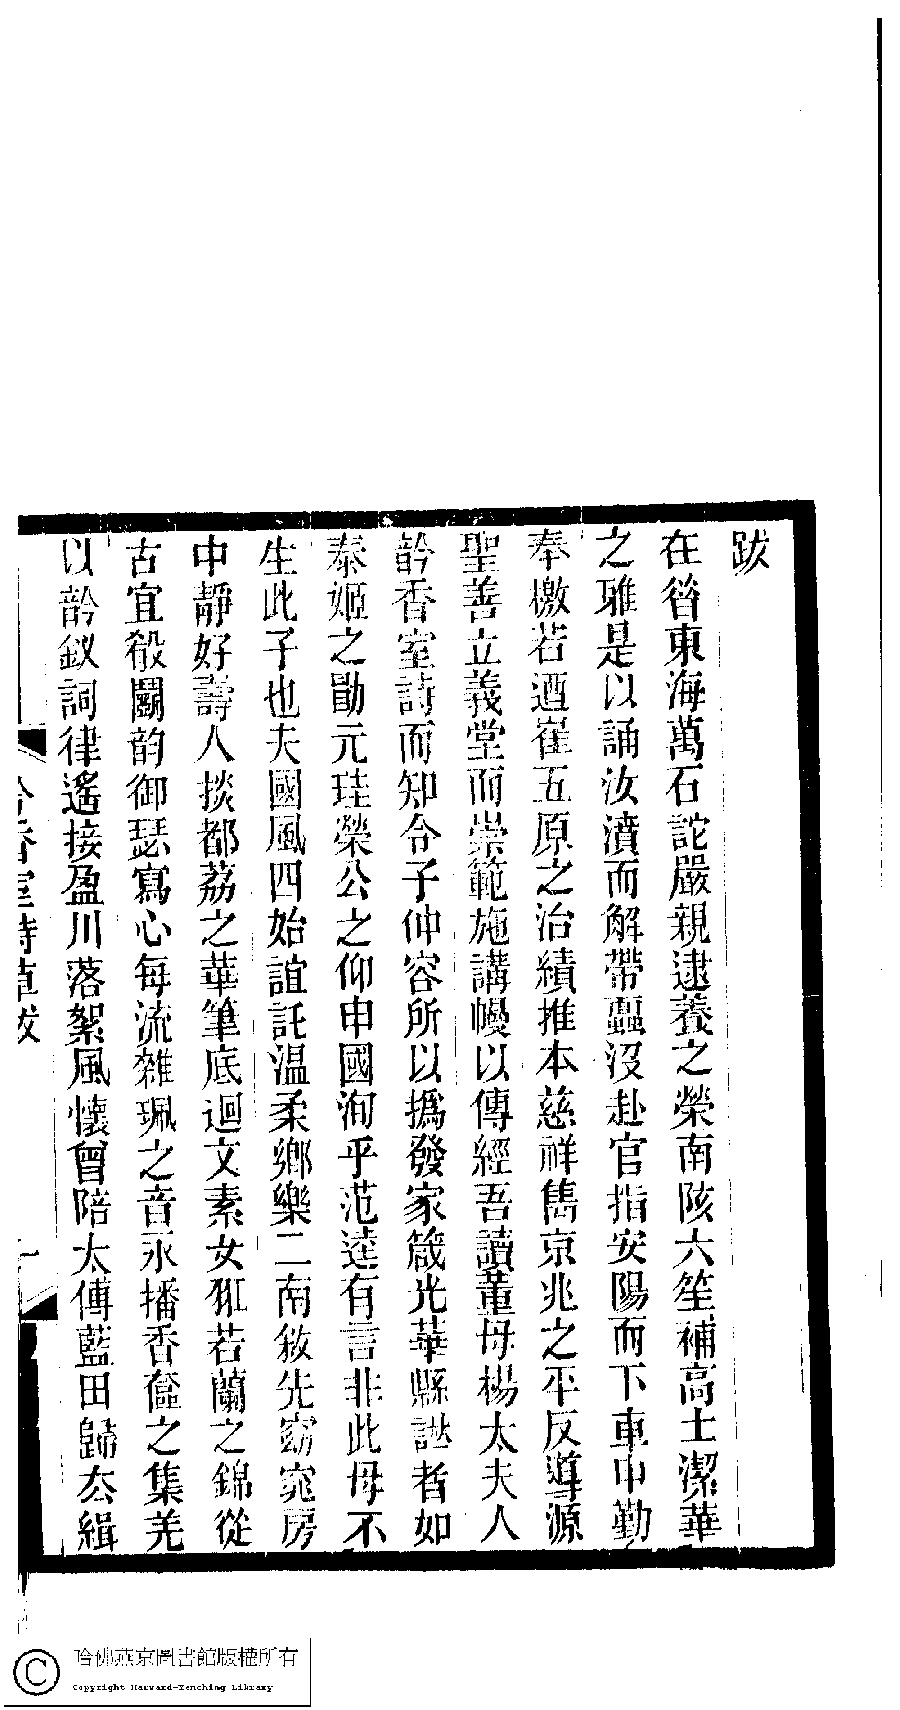 跋
在昝東海萬石詫嚴親逮養之榮南陔六笙補高士潔華
之雅是以誦汝濆而解帶蠠沒赴官指安陽而下車申勤
奉檄若迺崔五原之治績推本慈祥雋京兆之平反導源
聖善立義堂而崇範施講幔以傳經吾讀董母楊太夫人
齡香室詩而知令子仲容所以撝發家箴光華縣譜者如
泰姬之勖元珪榮公之仰申國洵乎范逵有言非此母不
生此子也夫國風四始誼託温柔鄉樂二南敘先窈窕房
中靜好壽人掞都荔之華筆底迴文素女䢴若蘭之錦從
古宜㲉鬭韵御瑟寫心每流雜珮之音永播香奩之集羌
以齡釵詞律遙接盈川落絮風懷曾陪太傅藍田歸厺緝
香室詩草跋
一
哈佛燕京圖書館版權所有
Copyright Harvard-Yenching Library